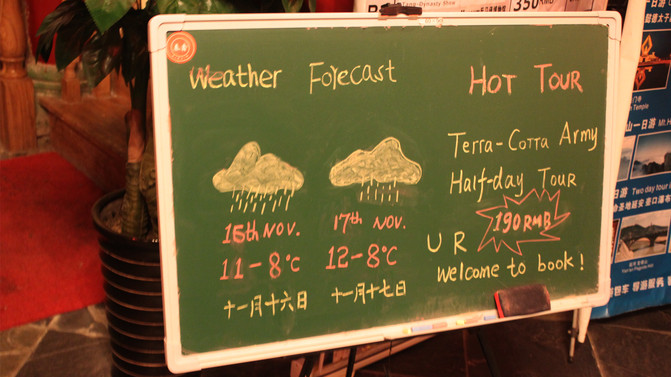 Weather Forecast
16th Nov.
11-8°C
十一月十六日
17th Nov.
12-8°C
十一月十七日
HOT TOUR
Terra-Cotta Army
Half-day Tour
190RMB
U R
welcome to book!
Tang-Dynasty Show
350RMB
一日游
Two day tour